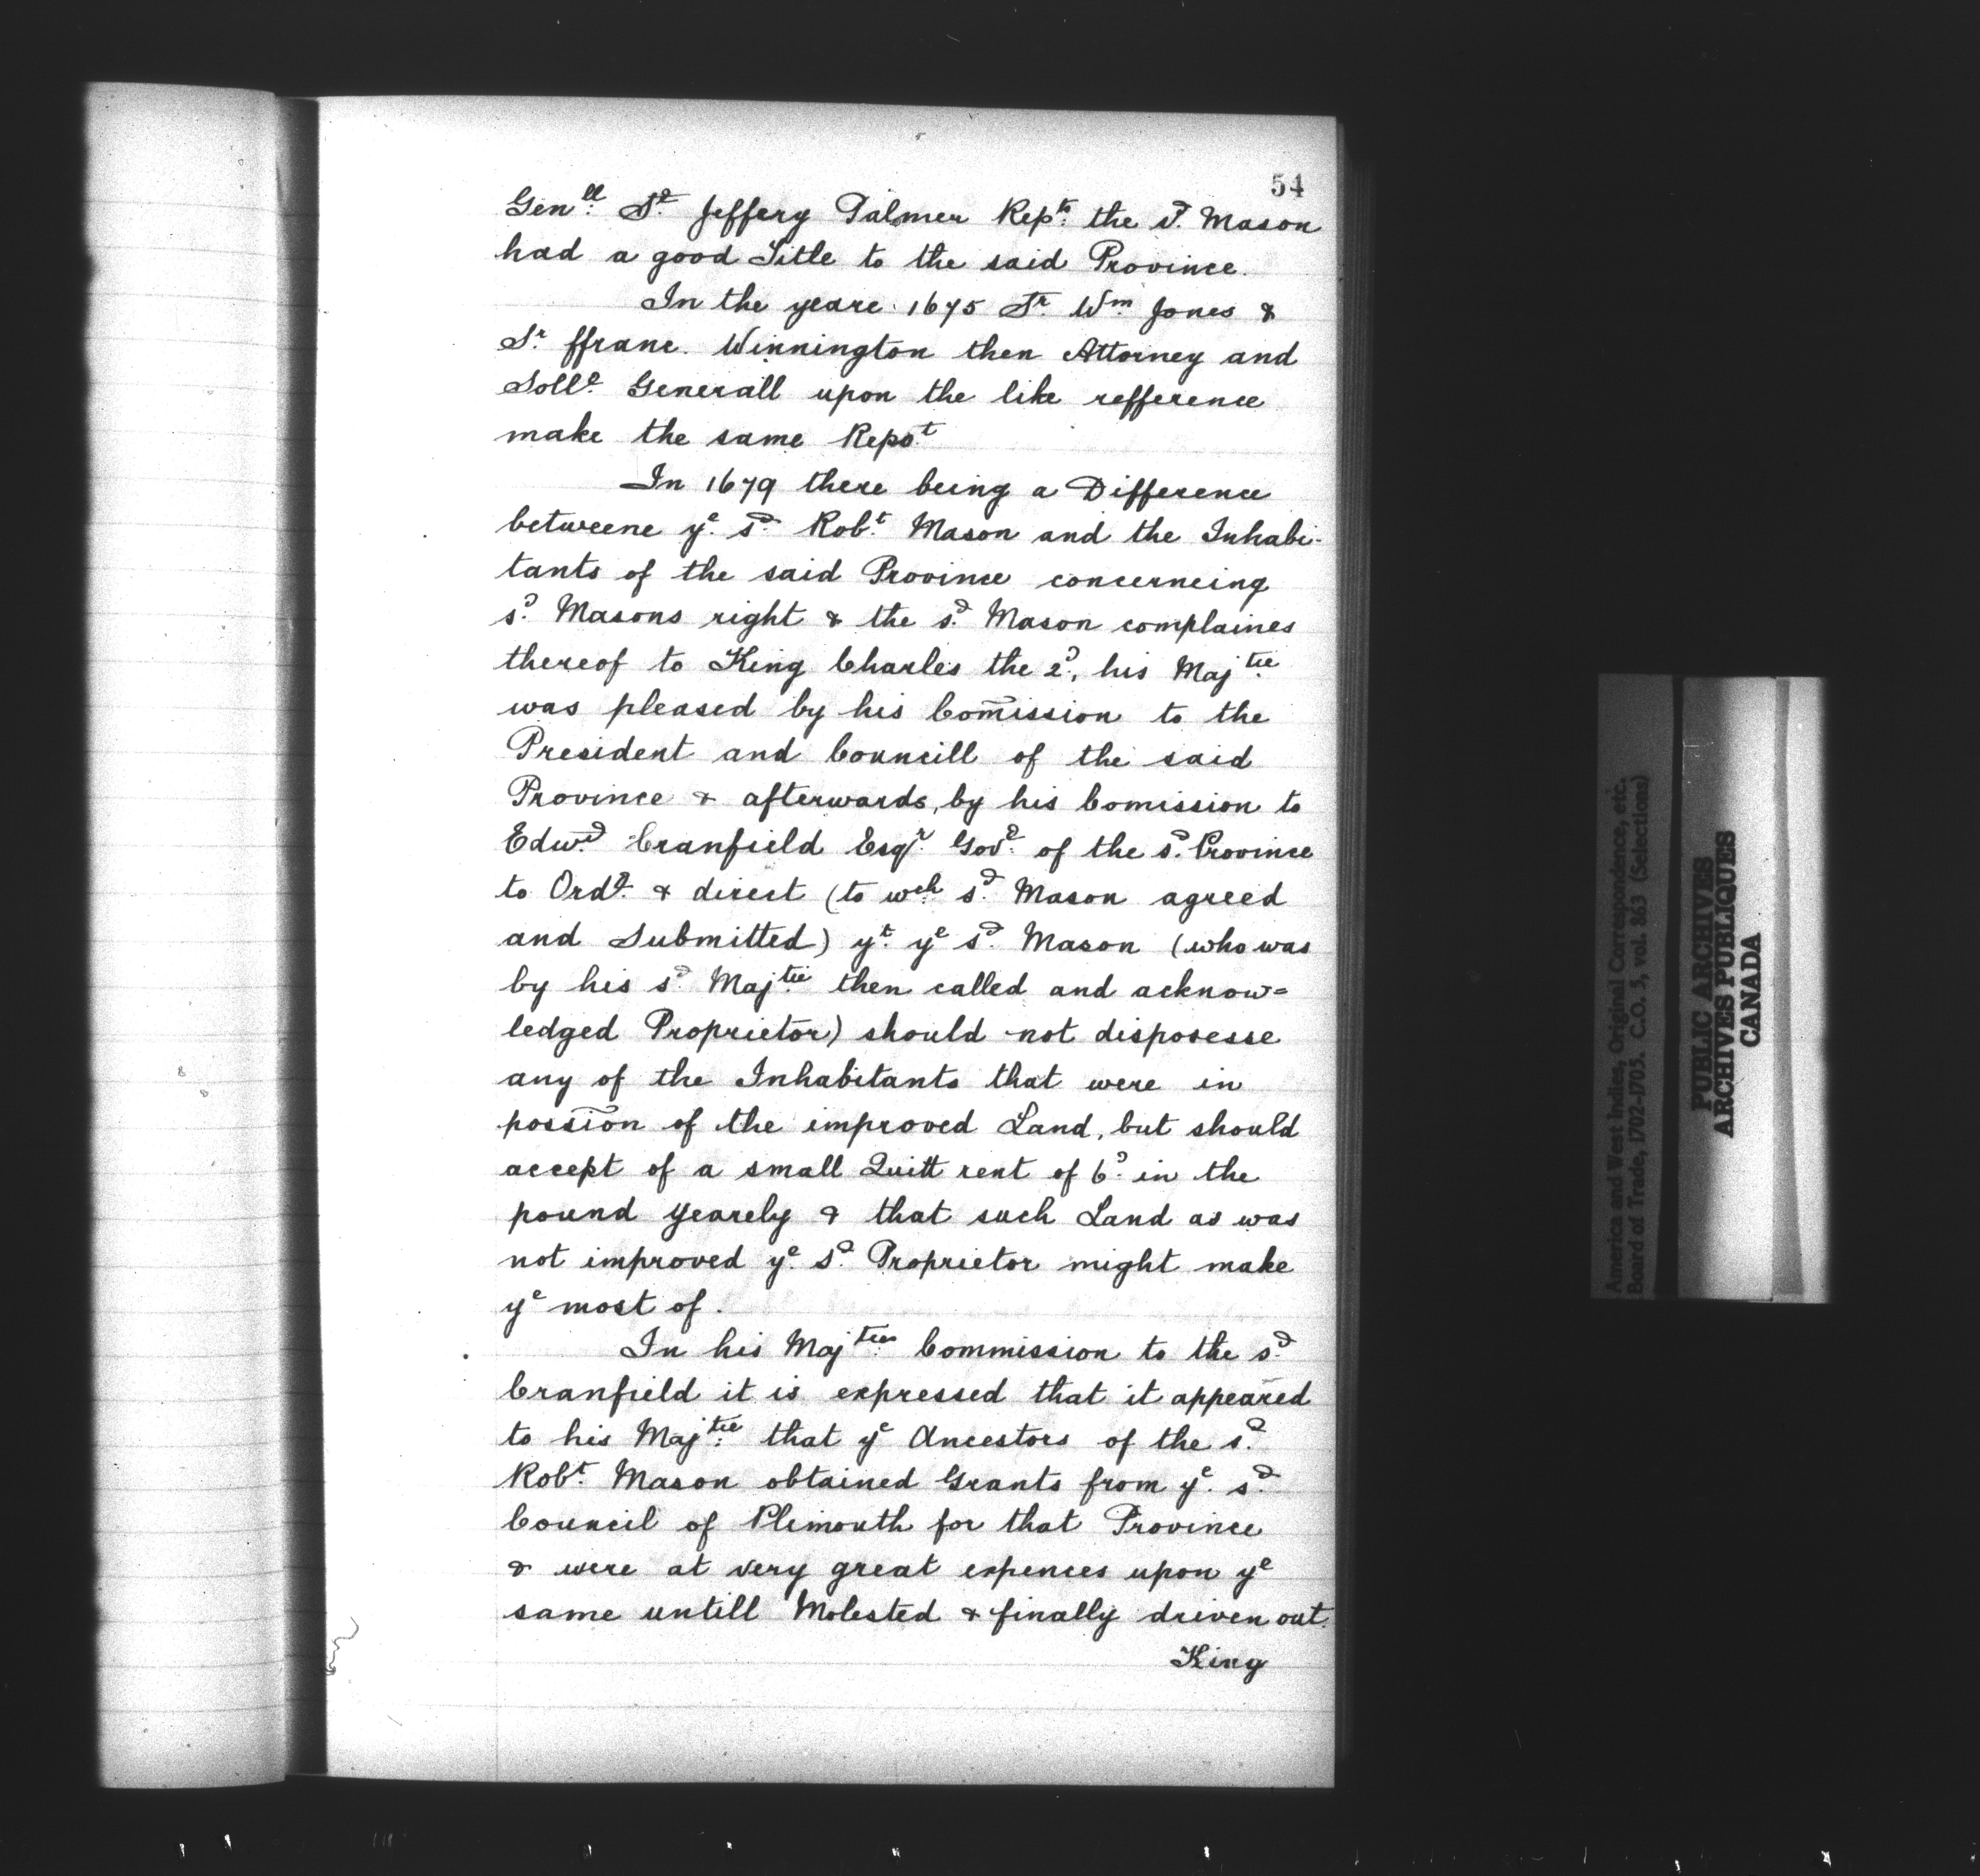 54
Genll. Sr. Jeffery Palmer Repts. the sd. Mason
had a good Title to the said Province.
In the yeare 1675 Sr. Wm. Jones &
Sr. ffranc. Winnington then Attorney and
Sollr. Generall upon the like refference
make the same Repot.
In 1679 there being a Difference
betweene ye. sd. Robt. Mason and the Inhabi-
tants of the said Province concerneing
sd. Masons right & the sd. Mason complaines
thereof to King Charles the 2d., his Majtie.
was pleased by his Com̄ission to the
President and Councill of the said
Province & afterwards, by his Comission to
Edwd. Cranfield Esqr. Govr. of the sd. Province
to Ordr. & direct (to wch. sd. Mason agreed
and Submitted) yt. ye sd. Mason (who was
by his sd. Majtie. then called and acknow=
ledged Proprietor) should not disposesse
any of the Inhabitants that were in
possion of the improved Land, but should
accept of a small Quitt rent of 6d. in the
pound yearely & that such Land as was
not improved ye. sd. Proprietor might make
ye most of.
In his Majties. Commission to the sd.
Cranfield it is expressed that it appeared
to his Majtie. that ye Ancestors of the sd.
Robt. Mason obtained Grants from ye. sd.
Council of Plimouth for that Province
& were at very great expences upon ye
same untill Molested & finally driven out.
King
America and West Indies, Original Correspondence, etc.
Board of Trade, 1702-1705. C.O. 5, vol. 863 (Selections)
PUBLIC ARCHIVES
ARCHIVES PUBLIQUES
CANADA